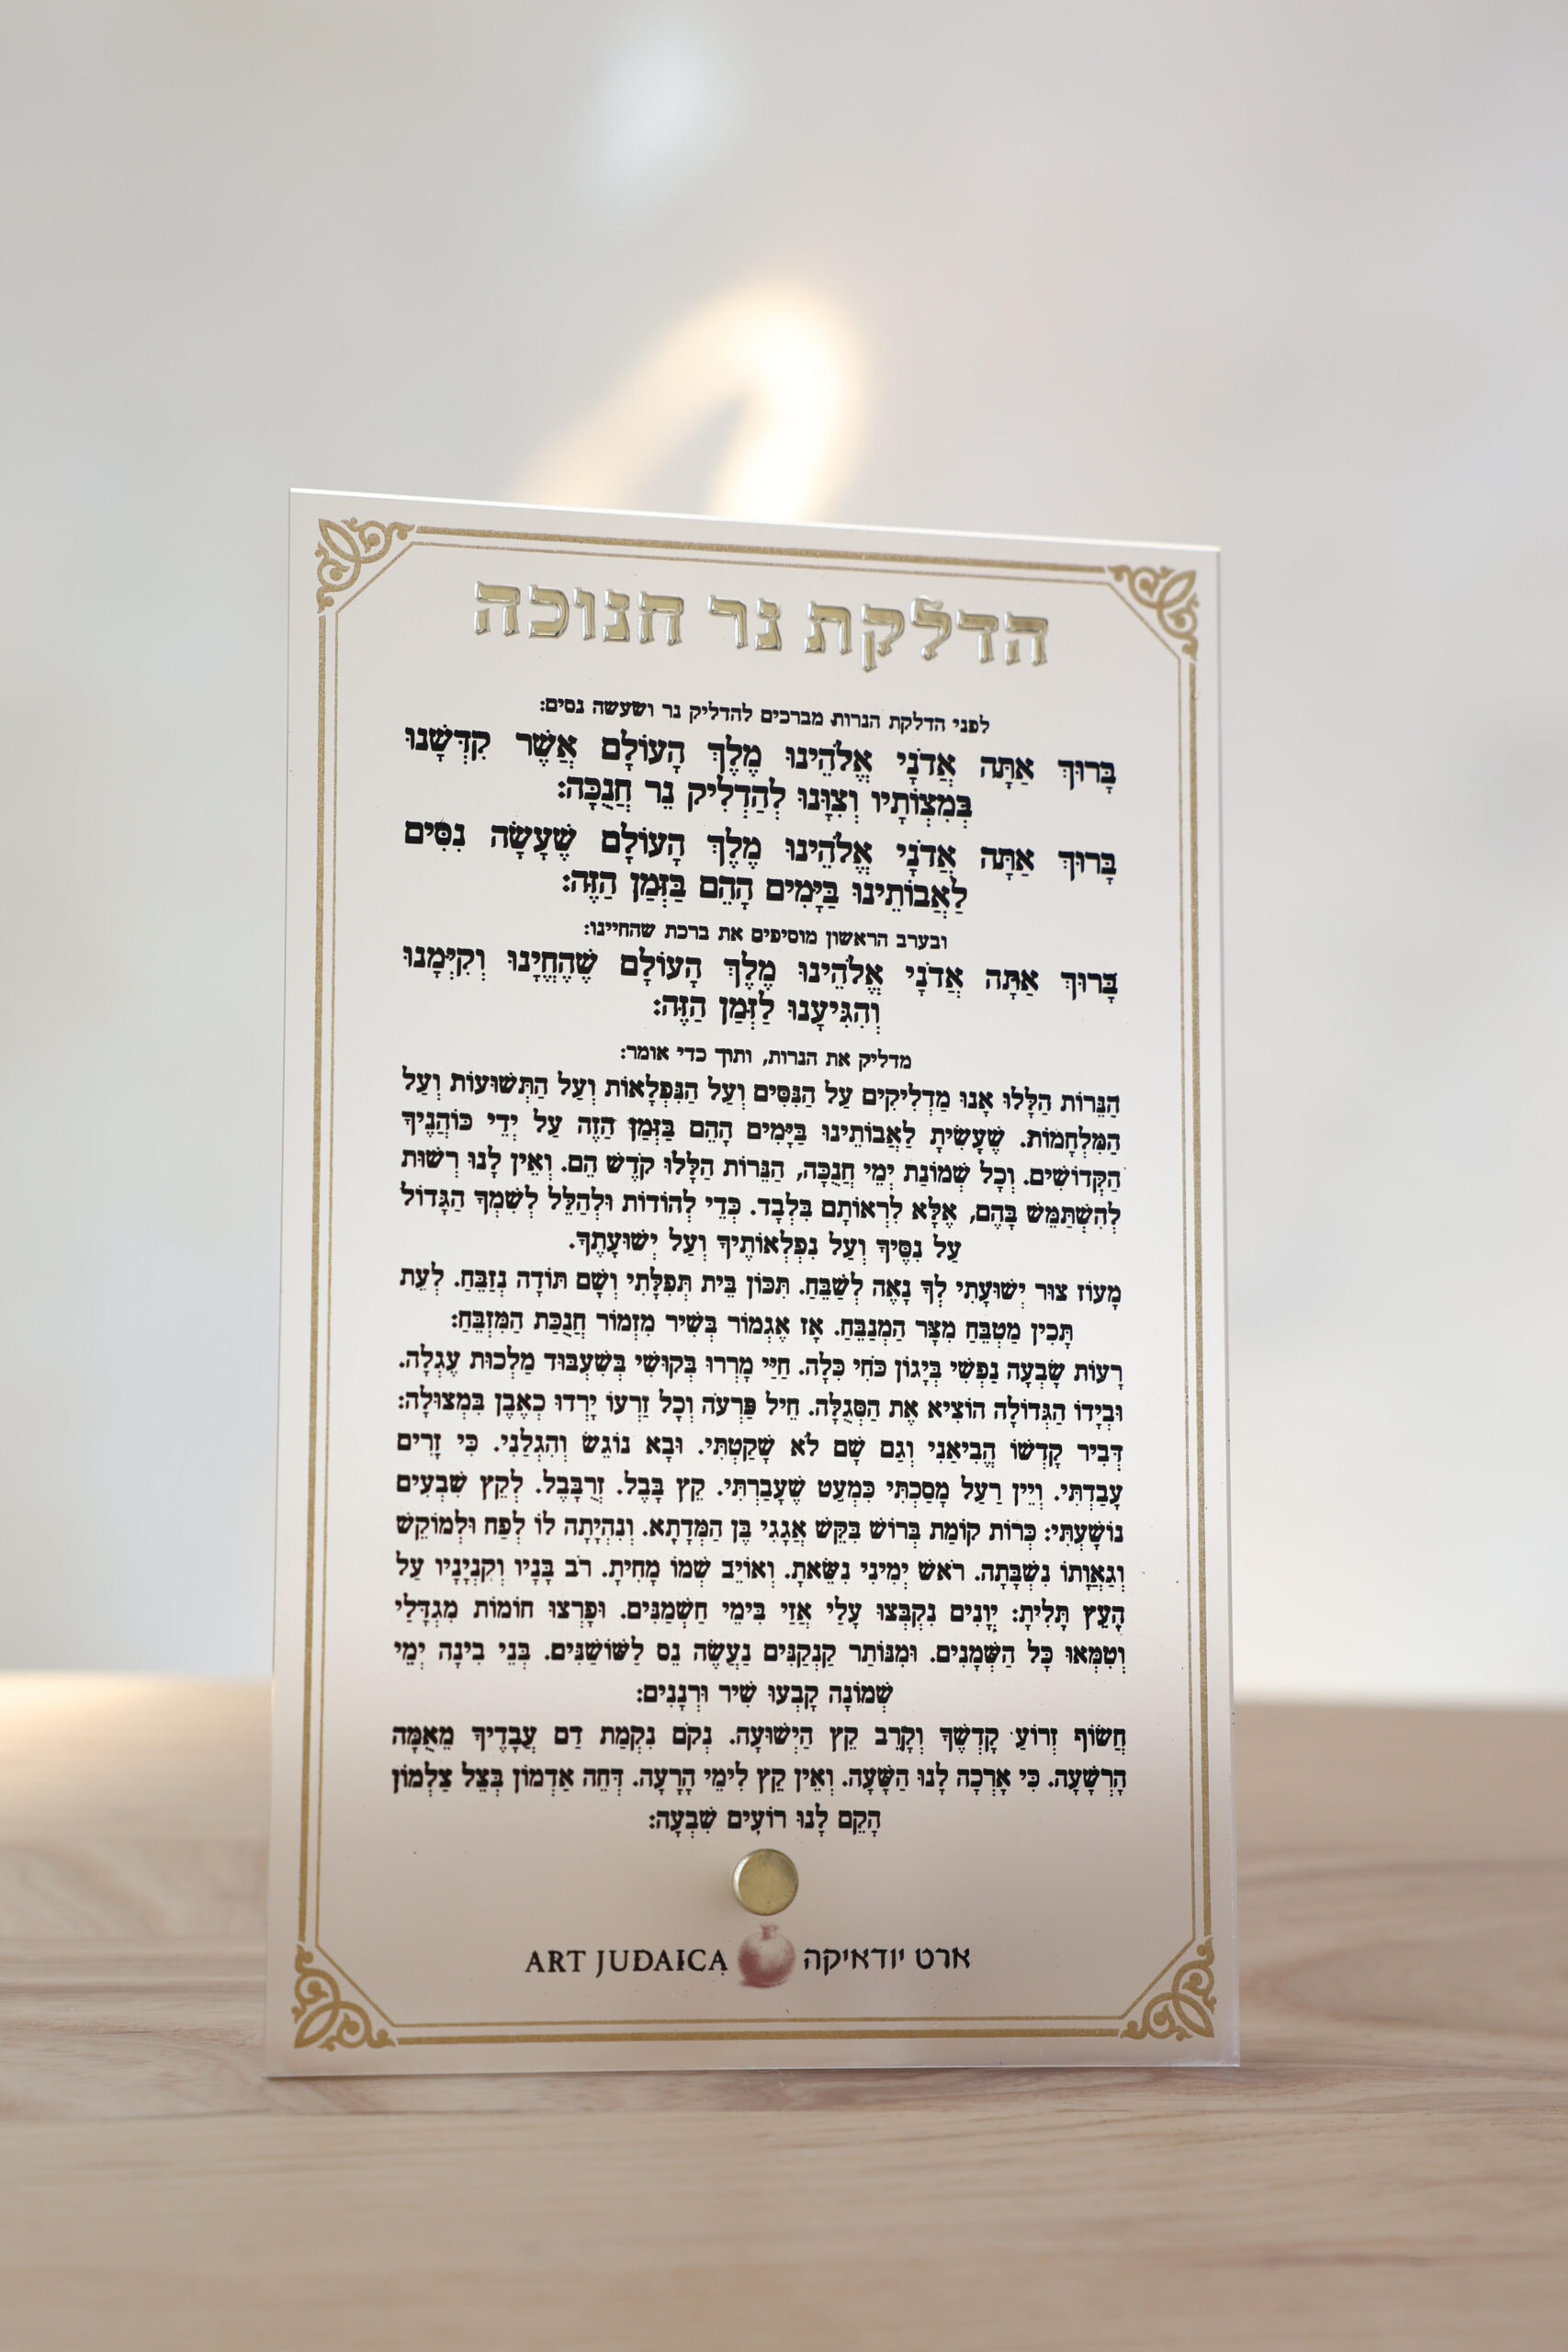 הדלקת נר חנוכה
לפני הדלקת הנרות מברכים להדליק נר ושעשה נסים:
בָּרוּךְ אַתָּה אֲדֹנָי אֱלֹהֵינוּ מֶלֶךְ הָעוֹלָם אֲשֶׁר קִדְּשָׁנוּ
בְּמִצְוֹתָיו וְצִוָּנוּ לְהַדְלִיק נֵר חֲנֻכָּה:
בָּרוּךְ אַתָּה אֲדֹנָי אֱלֹהֵינוּ מֶלֶךְ הָעוֹלָם שֶׁעָשָׂה נִסִּים
לַאֲבוֹתֵינוּ בַּיָּמִים הָהֵם בַּזְּמַן הַזֶּה:
ובערב הראשון מוסיפים את ברכת שהחיינו:
בָּרוּךְ אַתָּה אֲדֹנָי אֱלֹהֵינוּ מֶלֶךְ הָעוֹלָם שֶׁהֶחֱיָנוּ וְקִיְּמָנוּ
וְהִגִּיעָנוּ לַזְּמַן הַזֶּה:
מדליק את הנרות, ותוך כדי אומר:
הַנֵּרוֹת הַלָּלוּ אָנוּ מַדְלִיקִים עַל הַנִּסִּים וְעַל הַנִּפְלָאוֹת וְעַל הַתְּשׁוּעוֹת וְעַל
הַמִּלְחָמוֹת. שֶׁעָשִׂיתָ לַאֲבוֹתֵינוּ בַּיָּמִים הָהֵם בַּזְּמַן הַזֶּה עַל יְדֵי כּוֹהֲנֶיךָ
הַקְּדוֹשִׁים. וְכָל שְׁמוֹנַת יְמֵי חֲנֻכָּה, הַנֵּרוֹת הַלָּלוּ קֹדֶשׁ הֵם. וְאֵין לָנוּ רְשׁוּת
לְהִשְׁתַּמֵּשׁ בָּהֶם, אֶלָּא לִרְאוֹתָם בִּלְבָד. כְּדֵי לְהוֹדוֹת וּלְהַלֵּל לְשִׁמְךָ הַגָּדוֹל
עַל נִסֶּיךָ וְעַל נִפְלְאוֹתֶיךָ וְעַל יְשׁוּעָתֶךָ.
מָעוֹז צוּר יְשׁוּעָתִי לְךָ נָאֶה לְשַׁבֵּחַ. תִּכּוֹן בֵּית תְּפִלָּתִי וְשָׁם תּוֹדָה נְזַבֵּחַ. לְעֵת
תָּכִין מַטְבֵּחַ מִצָּר הַמְנַבֵּחַ. אָז אֶגְמוֹר בְּשִׁיר מִזְמוֹר חֲנֻכַּת הַמִּזְבֵּחַ:
רָעוֹת שָׂבְעָה נַפְשִׁי בְּיָגוֹן כֹּחִי כִּלָה. חַיַּי מָרְרוּ בְּקוּשִׁי בְּשִׁעְבּוּד מַלְכוּת עֶגְלָה.
וּבְיָדוֹ הַגְּדוֹלָה הוֹצִיא אֶת הַסְּגֻלָּה. חֵיל פַּרְעֹה וְכָל זַרְעוֹ יָרְדוּ כְּאֶבֶן בִּמְצוּלָה:
דְּבִיר קָדְשׁוֹ הֱבִיאַנִי וְגַם שָׁם לֹא שָׁקַטְתִּי. וּבָא נוֹגֵשׂ וְהִגְלַנִי. כִּי זָרִים
עָבַדְתִּי. וְיֵין רַעַל מָסַכְתִּי כִּמְעַט שֶׁעָבַרְתִּי. קֵץ בָּבֶל. זְרֻבָּבֶל. לְקֵץ שִׁבְעִים
נוֹשָׁעְתִּי: כְּרוֹת קוֹמַת בְּרוֹשׁ בִּקֵּשׁ אֲגָגִי בֶּן הַמְּדָתָא. וְנִהְיָתָה לוֹ לְפַח וּלְמוֹקֵשׁ
וְגַאֲוָתוֹ נִשְׁבָּתָה. רֹאשׁ יְמִינִי נִשֵּׂאתָ. וְאוֹיֵב שְׁמוֹ מָחִיתָ. רֹב בָּנָיו וְקִנְיָנָיו עַל
הָעֵץ תָּלִיתָ: יְוָנִים נִקְבְּצוּ עָלַי אֲזַי בִּימֵי חַשְׁמַנִּים. וּפָרְצוּ חוֹמוֹת מִגְדָּלַי
וְטִמְּאוּ כָּל הַשְּׁמָנִים. וּמִנּוֹתַר קַנְקַנִּים נַעֲשָׂה נֵס לַשּׁוֹשַׁנִּים. בְּנֵי בִינָה יְמֵי
שְׁמוֹנָה קָבְעוּ שִׁיר וּרְנָנִים:
חֲשׂוֹף זְרוֹעַ קָדְשֶׁךָ וְקָרֵב קֵץ הַיְשׁוּעָה. נְקֹם נִקְמַת דַּם עֲבָדֶיךָ מֵאֻמָּה
הָרְשָׁעָה. כִּי אָרְכָה לָנוּ הַשָּׁעָה. וְאֵין קֵץ לִימֵי הָרָעָה. דְּחֵה אַדְמוֹן בְּצֵל צַלְמוֹן
הָקֵם לָנוּ רוֹעִים שִׁבְעָה:
ארט יודאיקה ART JUDAICA